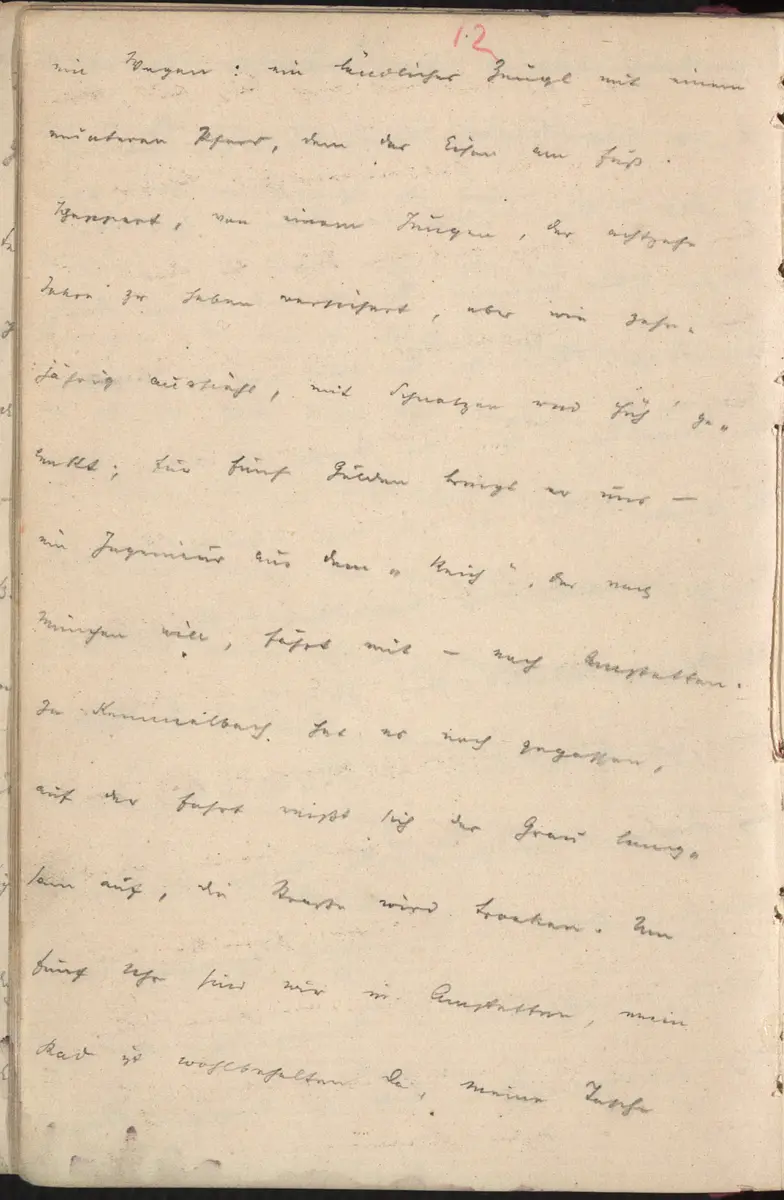 12
ein Wagen: ein ländliches Zeugl mit einem
munteren Pferd, dem das Eisen am Fuß
scheppert, von einem Jungen, der achtzehn
Jahre zu haben versichert, aber wie zehn-
jährig aussieht, mit Schnalzen und hüh! ge-
lenkt; für fünf Gulden bringt er uns —
ein Ingenieur aus dem „Reich", der nach
München will, fährt mit — nach Amstetten.
In Kemmelbach hat es noch gegossen,
auf der Fahrt reißt sich das Grau lang-
sam auf, die Straße wird trocken. Um
fünf Uhr sind wir in Amstetten, mein
Rad ist wohlbehalten da, meine Tasche